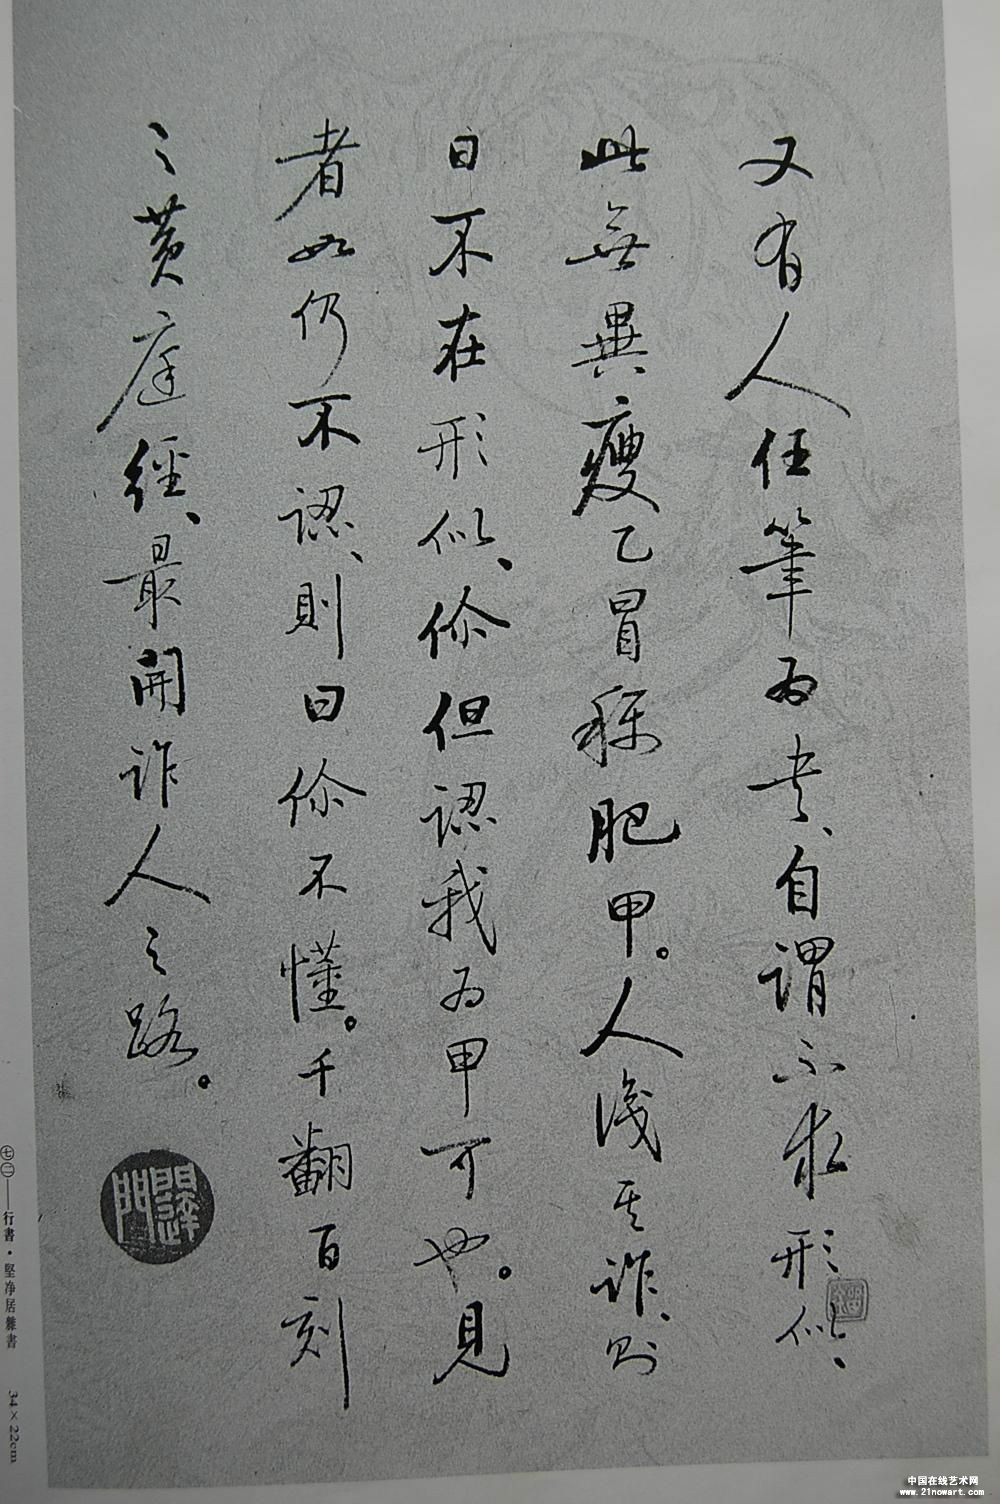 又有人任筆为書、自謂不求形似、
此無異瘦乙冒稱肥甲。人識其詐、則
曰不在形似、伱但認我为甲可也。見
者如仍不認、則曰伱不懂。千翻百刻
之黄庭經、最開詐人之路。
七二——行書・堅净居雜書 34×22cm
中国在线艺术网
www.21nowart.com